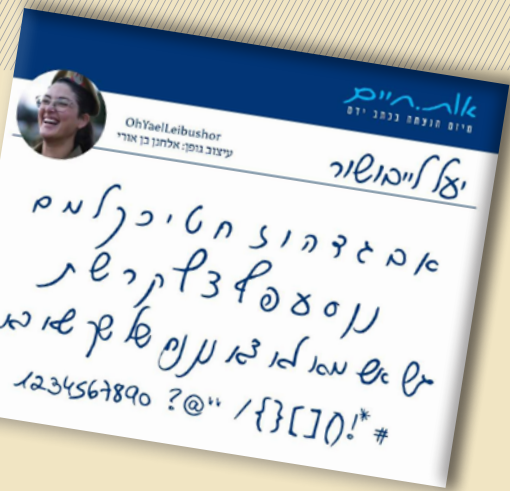 אות.חיים
מיזם הנצחה בכתב ידם
OhYaelLeibushor
עיצוב גופן: אלחנן בן אורי
יעל לייבושור
א ב ג ד ה ו ז ח ט י כ ך ל מ ם
נ ן ס ע פ ף צ ץ ק ר ש ת
אש מא לא צא של שך
1234567890 ?@“ /{}[]()!*#